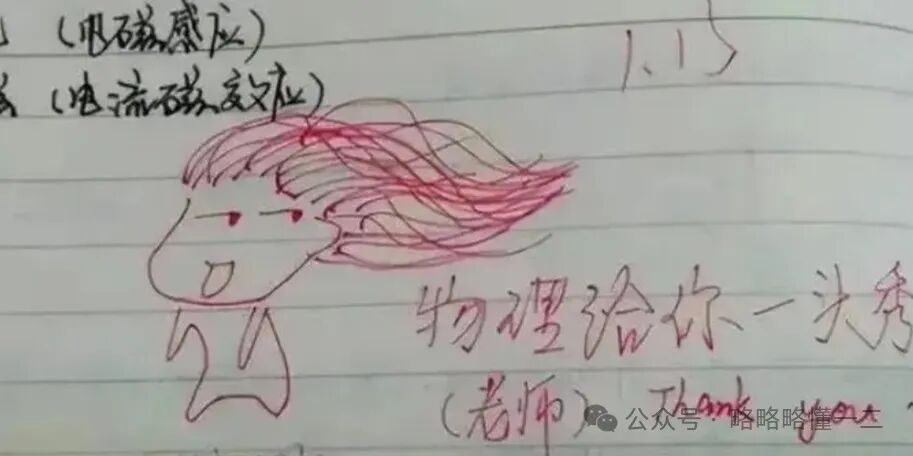 (电磁感应)
1.15
(电流磁效应)
物理给你一头秀
(老师) Thank you
公众号·略略略懂一二